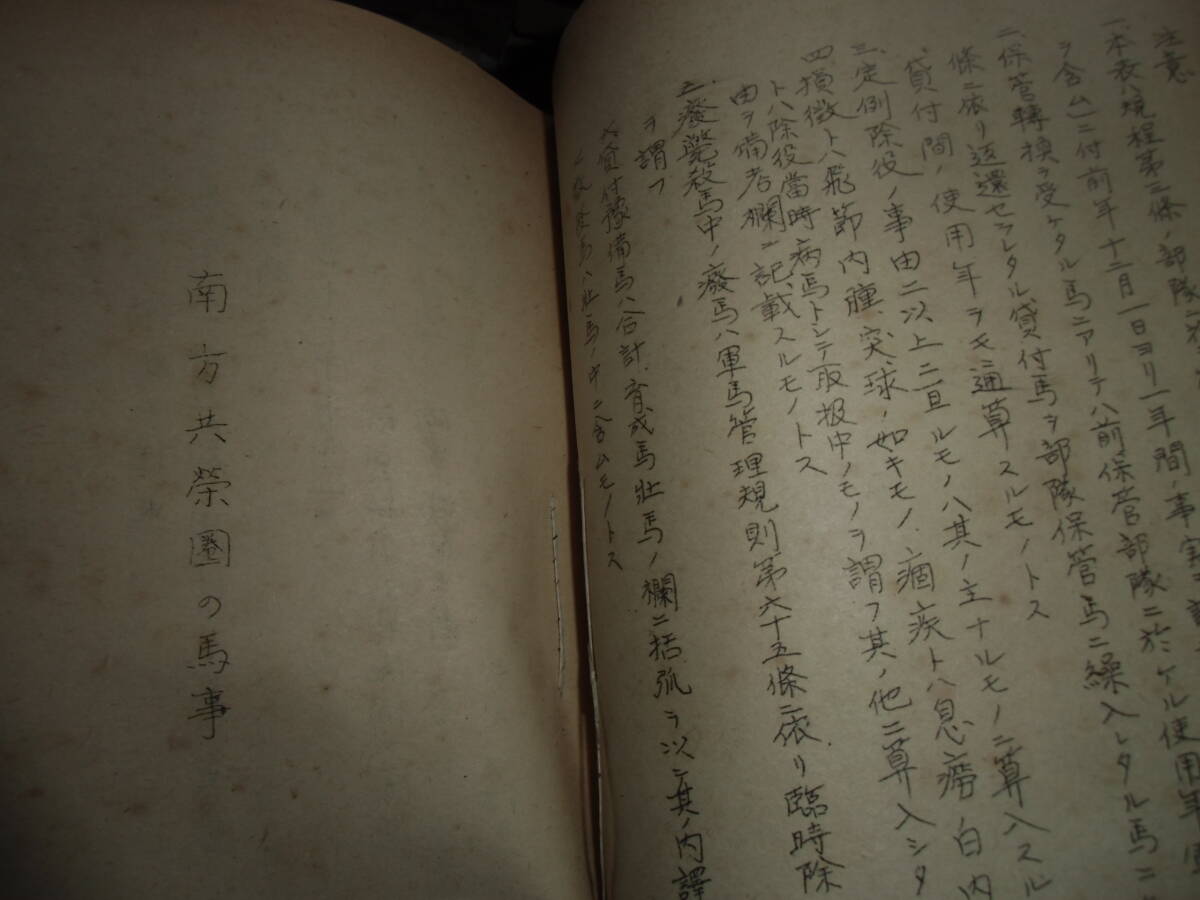 注意
一本表ハ規程第二條ノ部隊
ヲ含ム)ニ付前年十二月一日ヨリ一年間ノ事実
二、保管轉換ヲ受ケタル馬ニアリテハ前保管部隊ニ於ケル使用年
條ニ依リ返還セラレタル貸付馬ヲ部隊保管馬ニ繰入レタル馬ニ
貸付間ノ使用年ヲモ通算スルモノトス
三、定例除役ノ事由二以上ニ亘ルモノハ其ノ主ナルモノニ算入スル
四、損徴トハ飛節内腫、突球ノ如キモノ、痼疾トハ息癆、白内
トハ除役當時病馬トシテ取扱中ノモノヲ謂フ其ノ他ニ算入シタ
由ヲ備考欄ニ記載スルモノトス
五、癈斃殺馬中ノ癈馬ハ軍馬管理規則第六十五條ニ依リ臨時除
ヲ謂フ
六、貸付豫備馬ハ合計、育成馬壮馬ノ欄ニ括弧ヲ以テ其ノ内譯
馬ハ壮馬ノ中ニ含ムモノトス
南方共榮圏の馬事